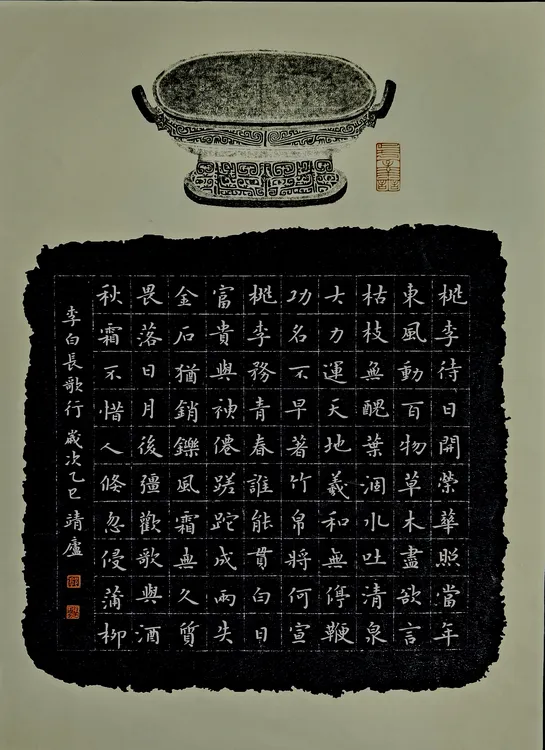 桃李待日開榮華照當年
東風動百物草木盡欲言
枯枝無醜葉涸水吐清泉
大力運天地羲和無停鞭
功名不早著竹帛將何宣
桃李務青春誰能貫白日
富貴與神僊蹉跎成兩失
金石猶銷鑠風霜無久質
畏落日月後彊歡歌與酒
秋霜不惜人倐忽侵蒲柳
李白長歌行 歲次乙巳 靖廬